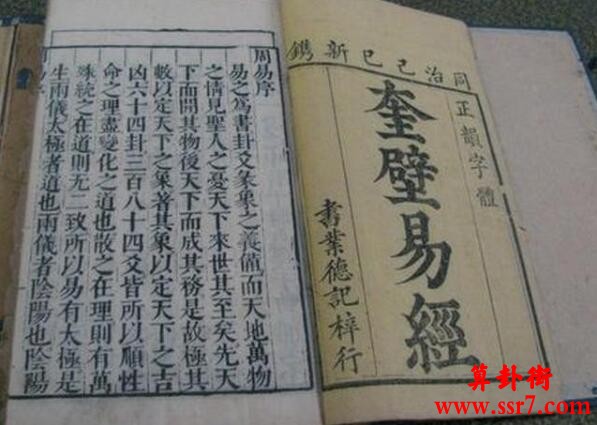 同治己巳新鐫
正韻字體
奎壁易經
書業德記梓行
周易序
易之爲書卦爻彖象之義備而天地萬物
之情見聖人之憂天下來世其至矣先天
下而開其物後天下而成其務是故極其
數以定天下之象著其象以定天下之吉
凶六十四卦三百八十四爻皆所以順性
命之理盡變化之道也散之在理則有萬
殊統之在道則无二致所以易有太極是
生兩儀太極者道也兩儀者陰陽也陰陽
算卦街
www.ssr7.com